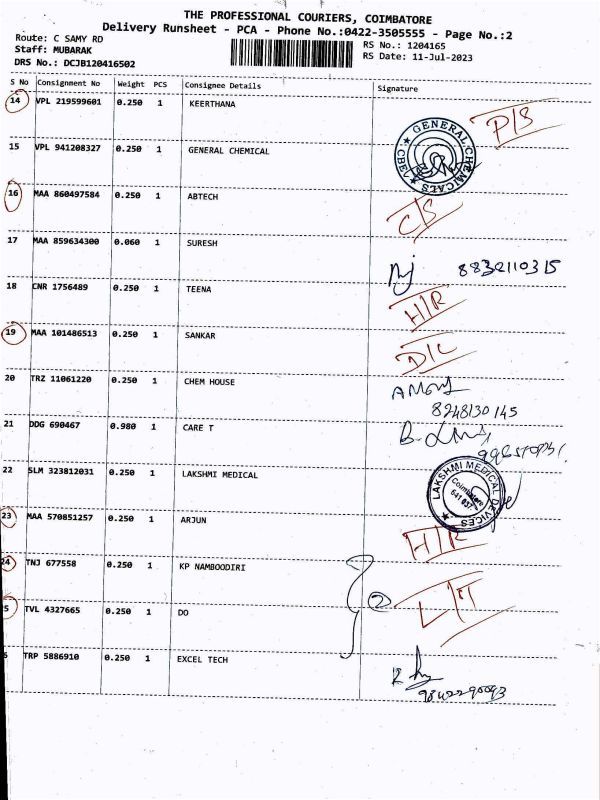 THE PROFESSIONAL COURIERS, COIMBATORE
Delivery Runsheet - PCA - Phone No.:0422-3505555 - Page No.:2
Route: C SAMY RD
RS No.: 1204165
Staff: MUBARAK
RS Date: 11-Jul-2023
DRS No.: DCJB120416502
S No Consignment No Weight PCS Consignee Details Signature
14 VPL 219599601 0.250 1 KEERTHANA P/S
15 VPL 941208327 0.250 1 GENERAL CHEMICAL
★ GENERAL CHEMICALS ★ CBE
16 MAA 860497584 0.250 1 ABTECH C/S
17 MAA 859634300 0.060 1 SURESH
8832110315
18 CNR 1756489 0.250 1 TEENA H/R
19 MAA 101486513 0.250 1 SANKAR D/L
20 TRZ 11061220 0.250 1 CHEM HOUSE
8248130145
21 DDG 690467 0.980 1 CARE T
22 SLM 323812031 0.250 1 LAKSHMI MEDICAL
LAKSHMI MEDICAL DEVICES ★
Coimbatore
641 037.
23 MAA 570851257 0.250 1 ARJUN H/R
24 TNJ 677558 0.250 1 KP NAMBOODIRI
2
25 TVL 4327665 0.250 1 DO
TRP 5886910 0.250 1 EXCEL TECH
9842290093